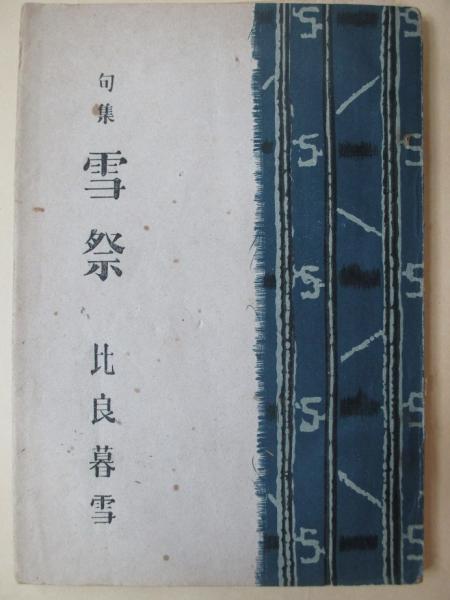 句集 雪祭 比良暮雪